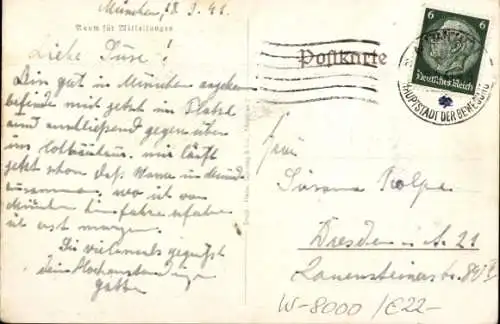 München, 18. 3. 41.
Raum für Mitteilungen
Liebe Suse!
Bin gut in München angekommen
befinde mich jetzt im Platzl
und anschließend gegen über
im Hofbräuhaus. mir läuft
jetzt schon das Wasser im Mund
zusammen. wo ich von
München hinfahre erfahre
ich erst morgen.
Sei vielmals gegrüßt
dein
Postkarte
6 6
Deutsches Reich
HAUPTSTADT DER BEWEGUNG
Susanna
Dresden - A. 21
Lauensteinerstr.
W-8000 /E22-